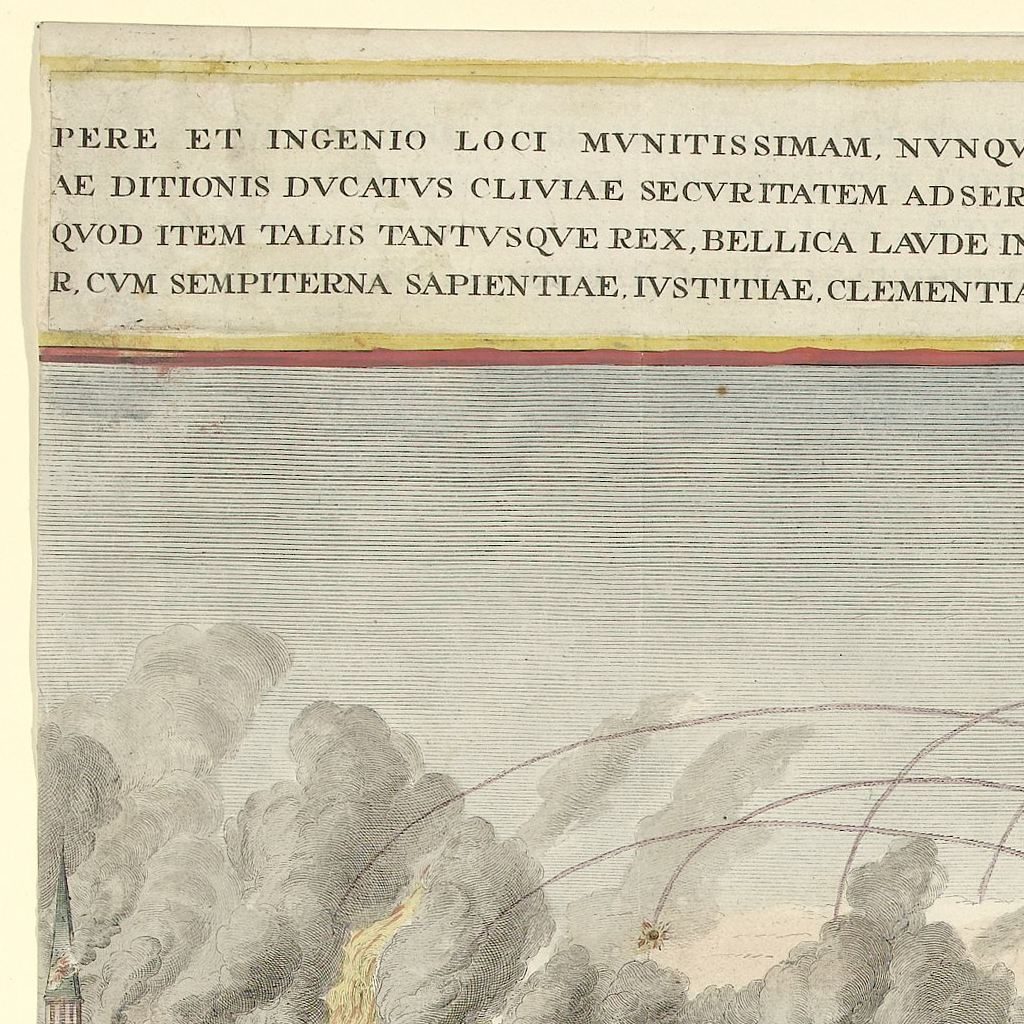 PERE ET INGENIO LOCI MVNITISSIMAM, NVNQV
AE DITIONIS DVCATVS CLIVIAE SECVRITATEM ADSER
QVOD ITEM TALIS TANTVSQVE REX, BELLICA LAVDE IN
R, CVM SEMPITERNA SAPIENTIAE, IVSTITIAE, CLEMENTIA